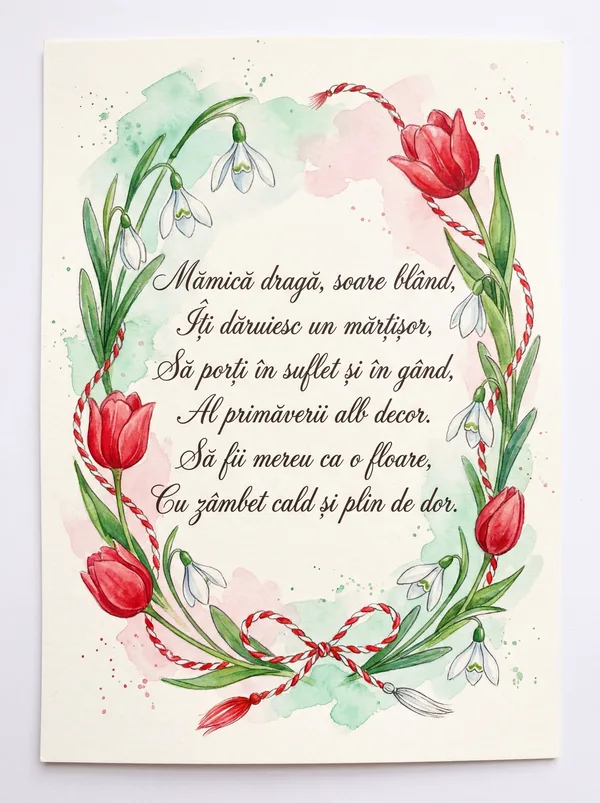 Mămică dragă, soare blând,
Îți dăruiesc un mărțișor,
Să porți în suflet și în gând,
Al primăverii alb decor.
Să fii mereu ca o floare,
Cu zâmbet cald și plin de dor.